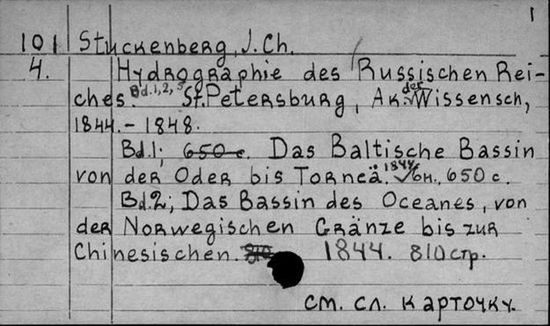 1
101 Stuckenberg, J. Ch.
4. Hydrographie des Russischen Rei-
ches. Bd. 1, 2, 3 St. Petersburg, Ak. der Wissensch,
1844. - 1848.
Bd. 1; 650 c. Das Baltische Bassin
von der Oder bis Torneå. 1844. 650 c.
Bd. 2; Das Bassin des Oceanes, von
der Norwegischen Gränze bis zur
Chinesischen. 810 1844. 810 стр.
см. сл. карточку.